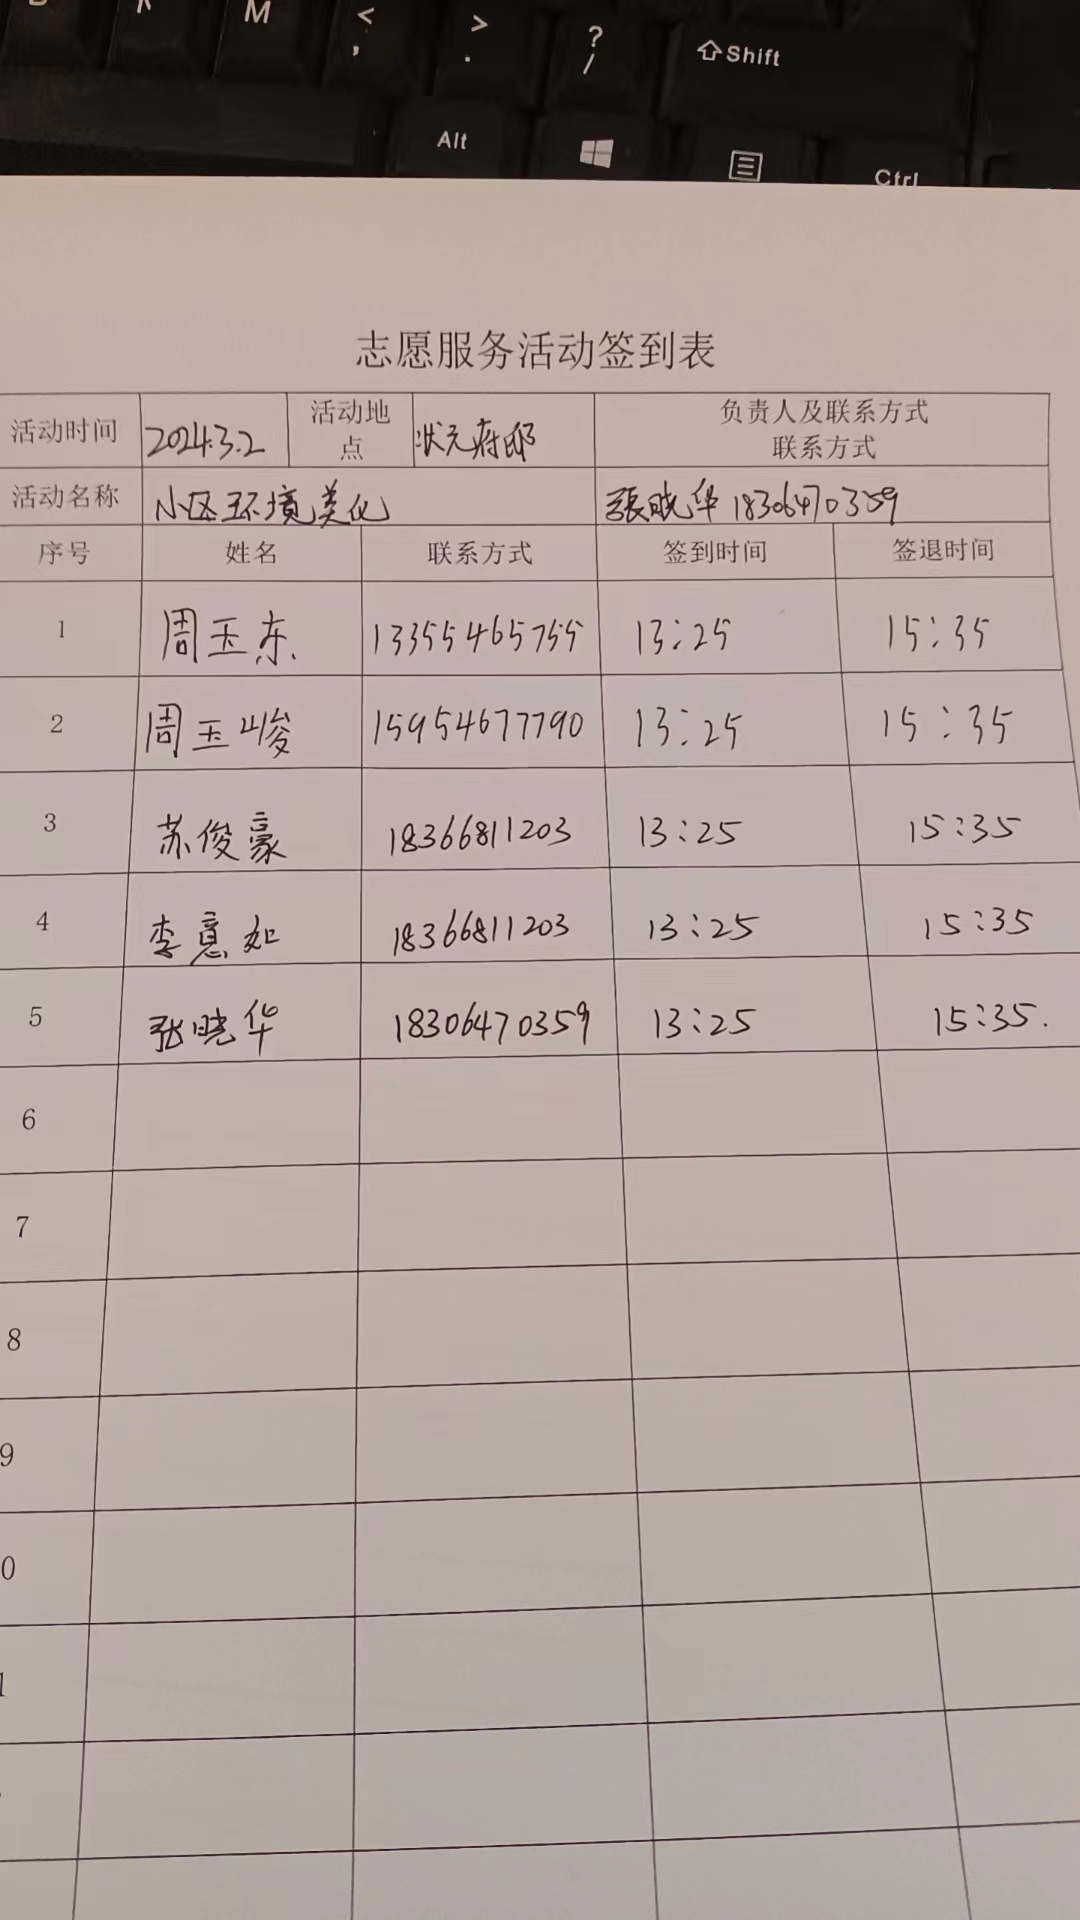 M < , > . ? / Shift
Alt Ctrl
志愿服务活动签到表
活动时间 2024.3.2 活动地点 状元府邸 负责人及联系方式
联系方式
活动名称 小区环境美化 張晓华 18306470359
序号 姓名 联系方式 签到时间 签退时间
1 周玉东 13355465755 13:25 15:35
2 周玉峻 15954677790 13:25 15:35
3 苏俊豪 18366811203 13:25 15:35
4 李意如 18366811203 13:25 15:35
5 张晓华 18306470359 13:25 15:35.
6
7
8
9
0
1